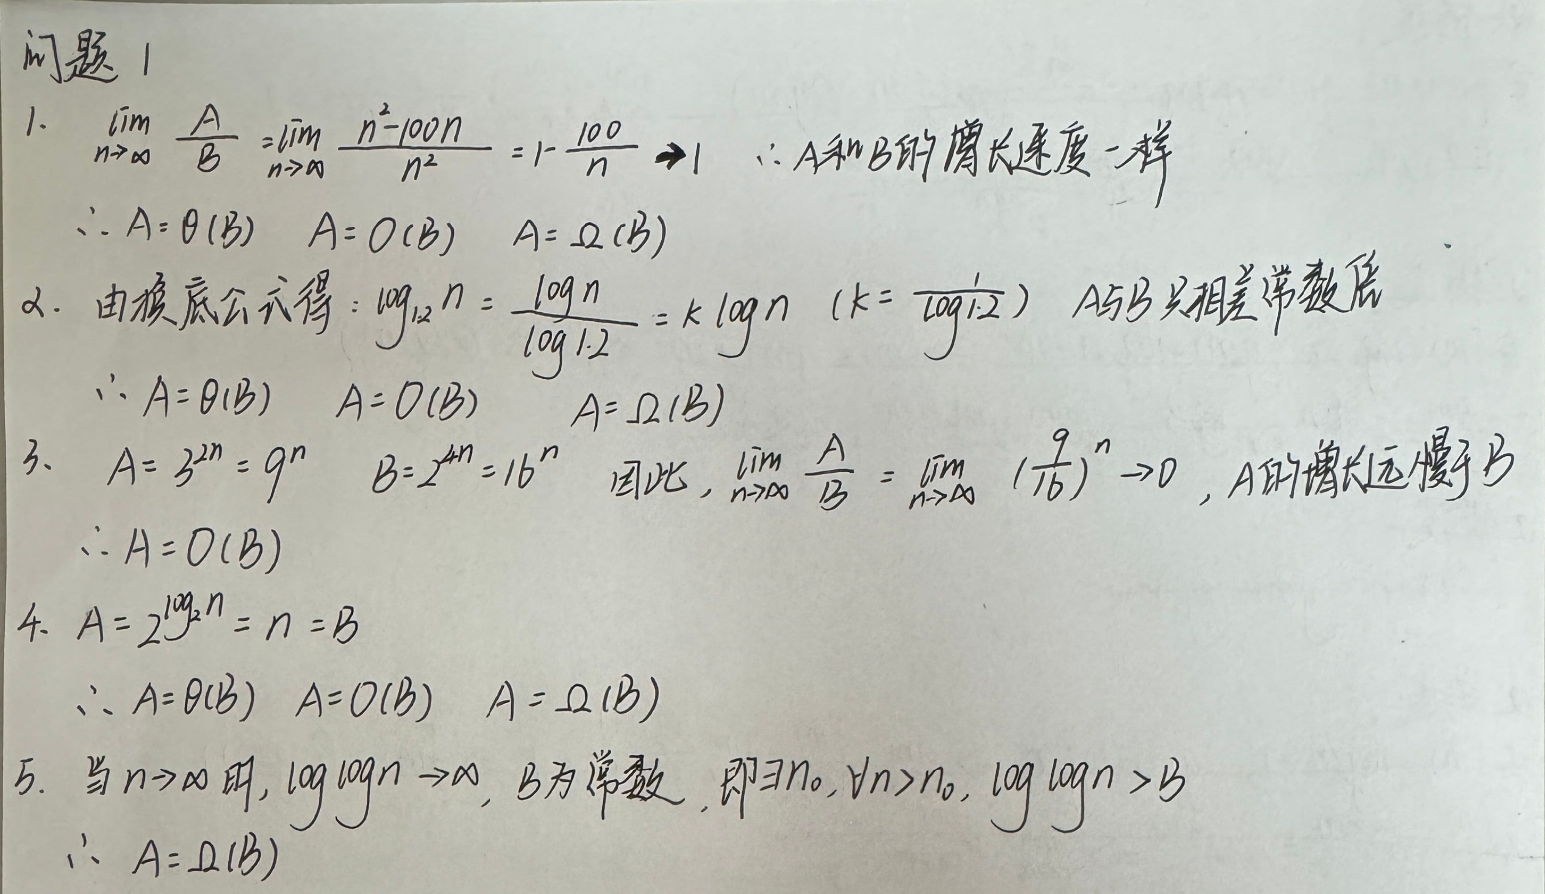 问题 1
1. lim n→∞ A/B = lim n→∞ (n²-100n)/n² = 1 - 100/n → 1 ∴ A和B的增长速度一样
∴ A=θ(B) A=O(B) A=Ω(B)
2. 由换底公式得: log₁.₂ n = log n / log 1.2 = k log n (k = 1/log 1.2) A与B只相差常数倍
∴ A=θ(B) A=O(B) A=Ω(B)
3. A=3²ⁿ=9ⁿ B=2⁴ⁿ=16ⁿ 因此, lim n→∞ A/B = lim n→∞ (9/16)ⁿ → 0, A的增长远慢于B
∴ A=O(B)
4. A=2^(log₂n) = n = B
∴ A=θ(B) A=O(B) A=Ω(B)
5. 当n→∞时, log log n→∞, B为常数, 即∃n₀, ∀n>n₀, log log n > B
∴ A=Ω(B)